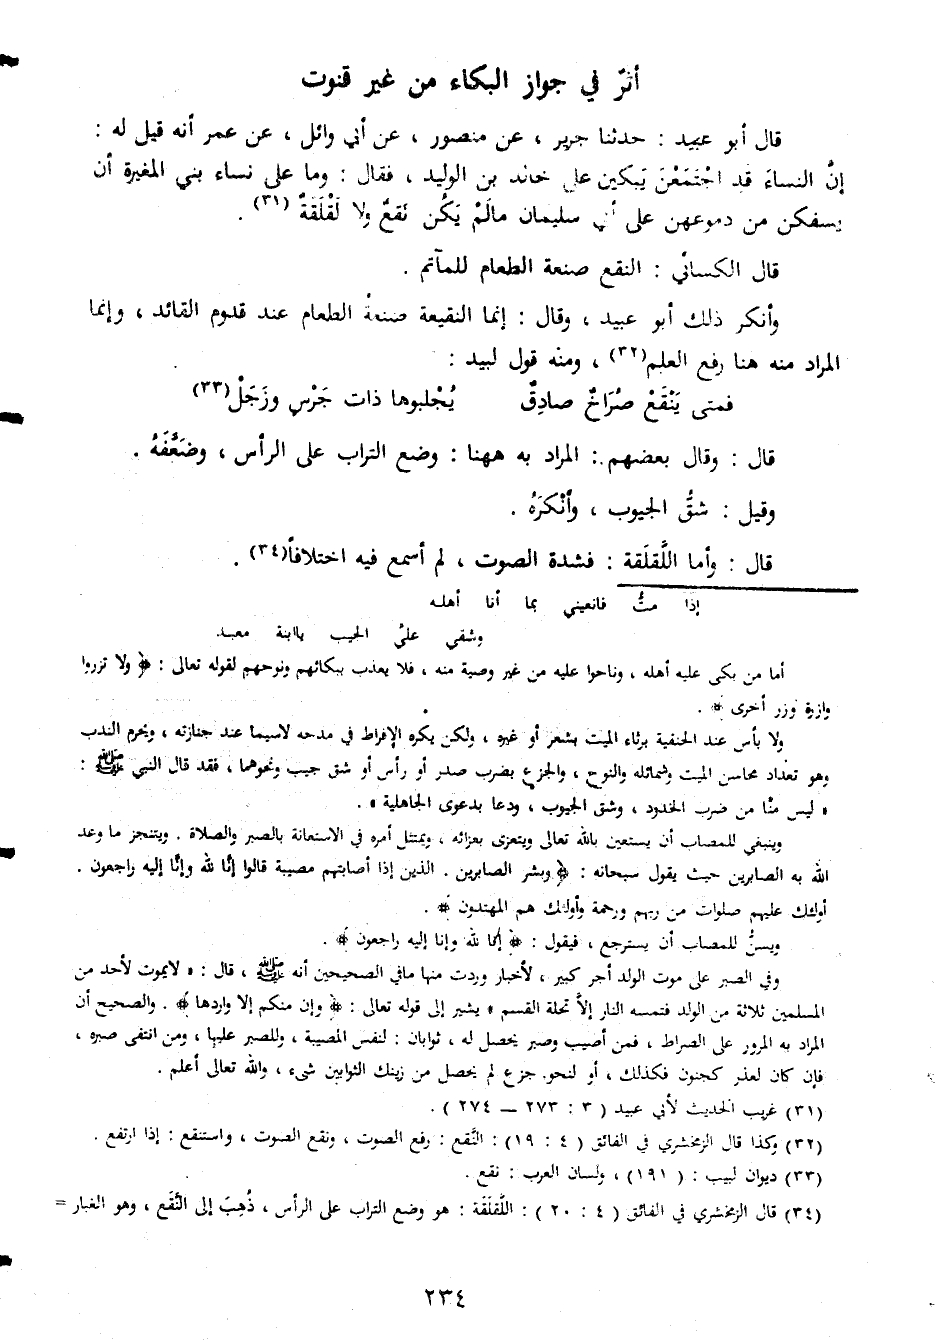 أثرٌ في جواز البكاء من غير قنوت
قال أبو عبيد : حدثنا جرير ، عن منصور ، عن أبي وائل ، عن عمر أنه قيل له :
إنَّ النساءَ قد اجْتَمَعْنَ يَبكين على خالد بن الوليد ، فقال : وما على نساء بني المغيرة أن
يسفكن من دموعهن على أبي سليمان مالَمْ يَكُن نَقعٌ ولا لَقْلَقَةٌ (٣١) .
قال الكسائي : النقع صنعة الطعام للمآتم .
وأنكر ذلك أبو عبيد ، وقال : إنما النقيعة صنعة الطعام عند قدوم القائد ، وإنما
المراد منه هنا رفع العلم(٣٢) ، ومنه قول لبيد :
فمتى يَنْقَعْ صُرَاخٌ صادِقٌ يُجْلبوها ذات جَرْسٍ وزَجَلْ(٣٣)
قال : وقال بعضهم : المراد به ههنا : وضع التراب على الرأس ، وضَعَّفَهُ .
وقيل : شقُّ الجيوب ، وأنْكرَهُ .
قال : وأما اللَّقلَقة : فشدة الصوت ، لم أسمع فيه اختلافاً(٣٤) .
إذا متُّ فانعيني بما أنا أهله
وشقي عليَّ الجيب ياابنة معبد
أما من بكى عليه أهله ، وناحوا عليه من غير وصية منه ، فلا يعذب ببكائهم ونوحهم لقوله تعالى : ﴿ ولا تزروا
وازرة وزر أخرى ﴾ .
ولا بأس عند الحنفية برثاء الميت بشعر أو غيره ، ولكن يكره الإفراط في مدحه لاسيما عند جنازته ، ويحرم الندب
وهو تعداد محاسن الميت وشمائله والنوح ، والجزع بضرب صدر أو رأس أو شق جيب ونحوهما ، فقد قال النبي ﷺ :
« ليس منَّا من ضرب الخدود ، وشق الجيوب ، ودعا بدعوى الجاهلية » .
وينبغي للمصاب أن يستعين بالله تعالى ويتعزى بعزائه ، ويمتثل أمره في الاستعانة بالصبر والصلاة . ويتنجز ما وعد
الله به الصابرين حيث يقول سبحانه : ﴿ وبشر الصابرين . الذين إذا أصابتهم مصيبة قالوا إنَّا لله وإنَّا إليه راجعون .
أولئك عليهم صلوات من ربهم ورحمة وأولئك هم المهتدون ﴾ .
ويسنُّ للمصاب أن يسترجع ، فيقول : ﴿ إنَّا لله وإنا إليه راجعون ﴾ .
وفي الصبر على موت الولد أجر كبير ، لأخبار وردت منها مافي الصحيحين أنه ﷺ ، قال : « لايموت لأحد من
المسلمين ثلاثة من الولد فتمسه النار إلاَّ تحلة القسم » يشير إلى قوله تعالى : ﴿ وإن منكم إلا واردها ﴾ . والصحيح أن
المراد به المرور على الصراط ، فمن أصيب وصبر يحصل له ، ثوابان : لنفس المصيبة ، وللصبر عليها ، ومن انتفى صبره ،
فإن كان لعذر كجنون فكذلك ، أو لنحو جزع لم يحصل من زينك الثوابين شيء ، والله تعالى أعلم .
(٣١) غريب الحديث لأبي عبيد ( ٣ : ٢٧٣ — ٢٧٤ ) .
(٣٢) وكذا قال الزمخشري في الفائق ( ٤ : ١٩ ) : النَّقع : رفع الصوت ، ونقع الصوت ، واستنقع : إذا ارتفع .
(٣٣) ديوان لبيب : ( ١٩١ ) ، ولسان العرب : نقع .
(٣٤) قال الزمخشري في الفائق ( ٤ : ٢٠ ) : اللَّقلَقَة : هو وضع التراب على الرأس ، ذُهِبَ إلى النَّقْع ، وهو الغبار =
٢٣٤